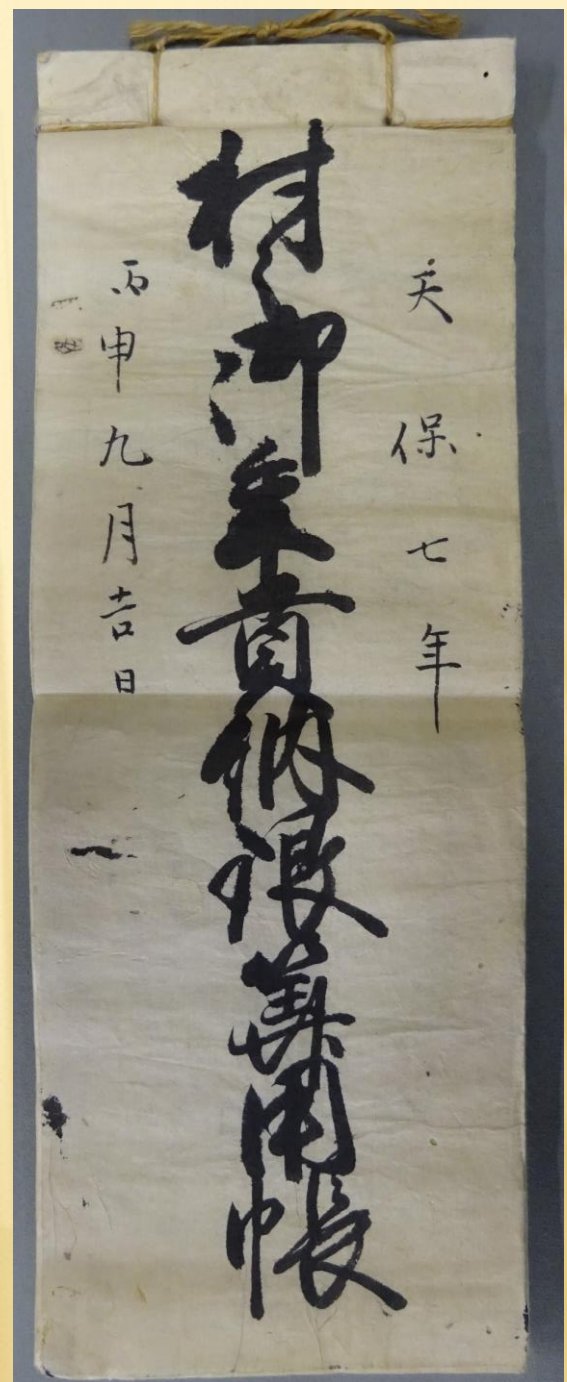 天保七年
村々御年貢納銀算用帳
丙申九月吉日